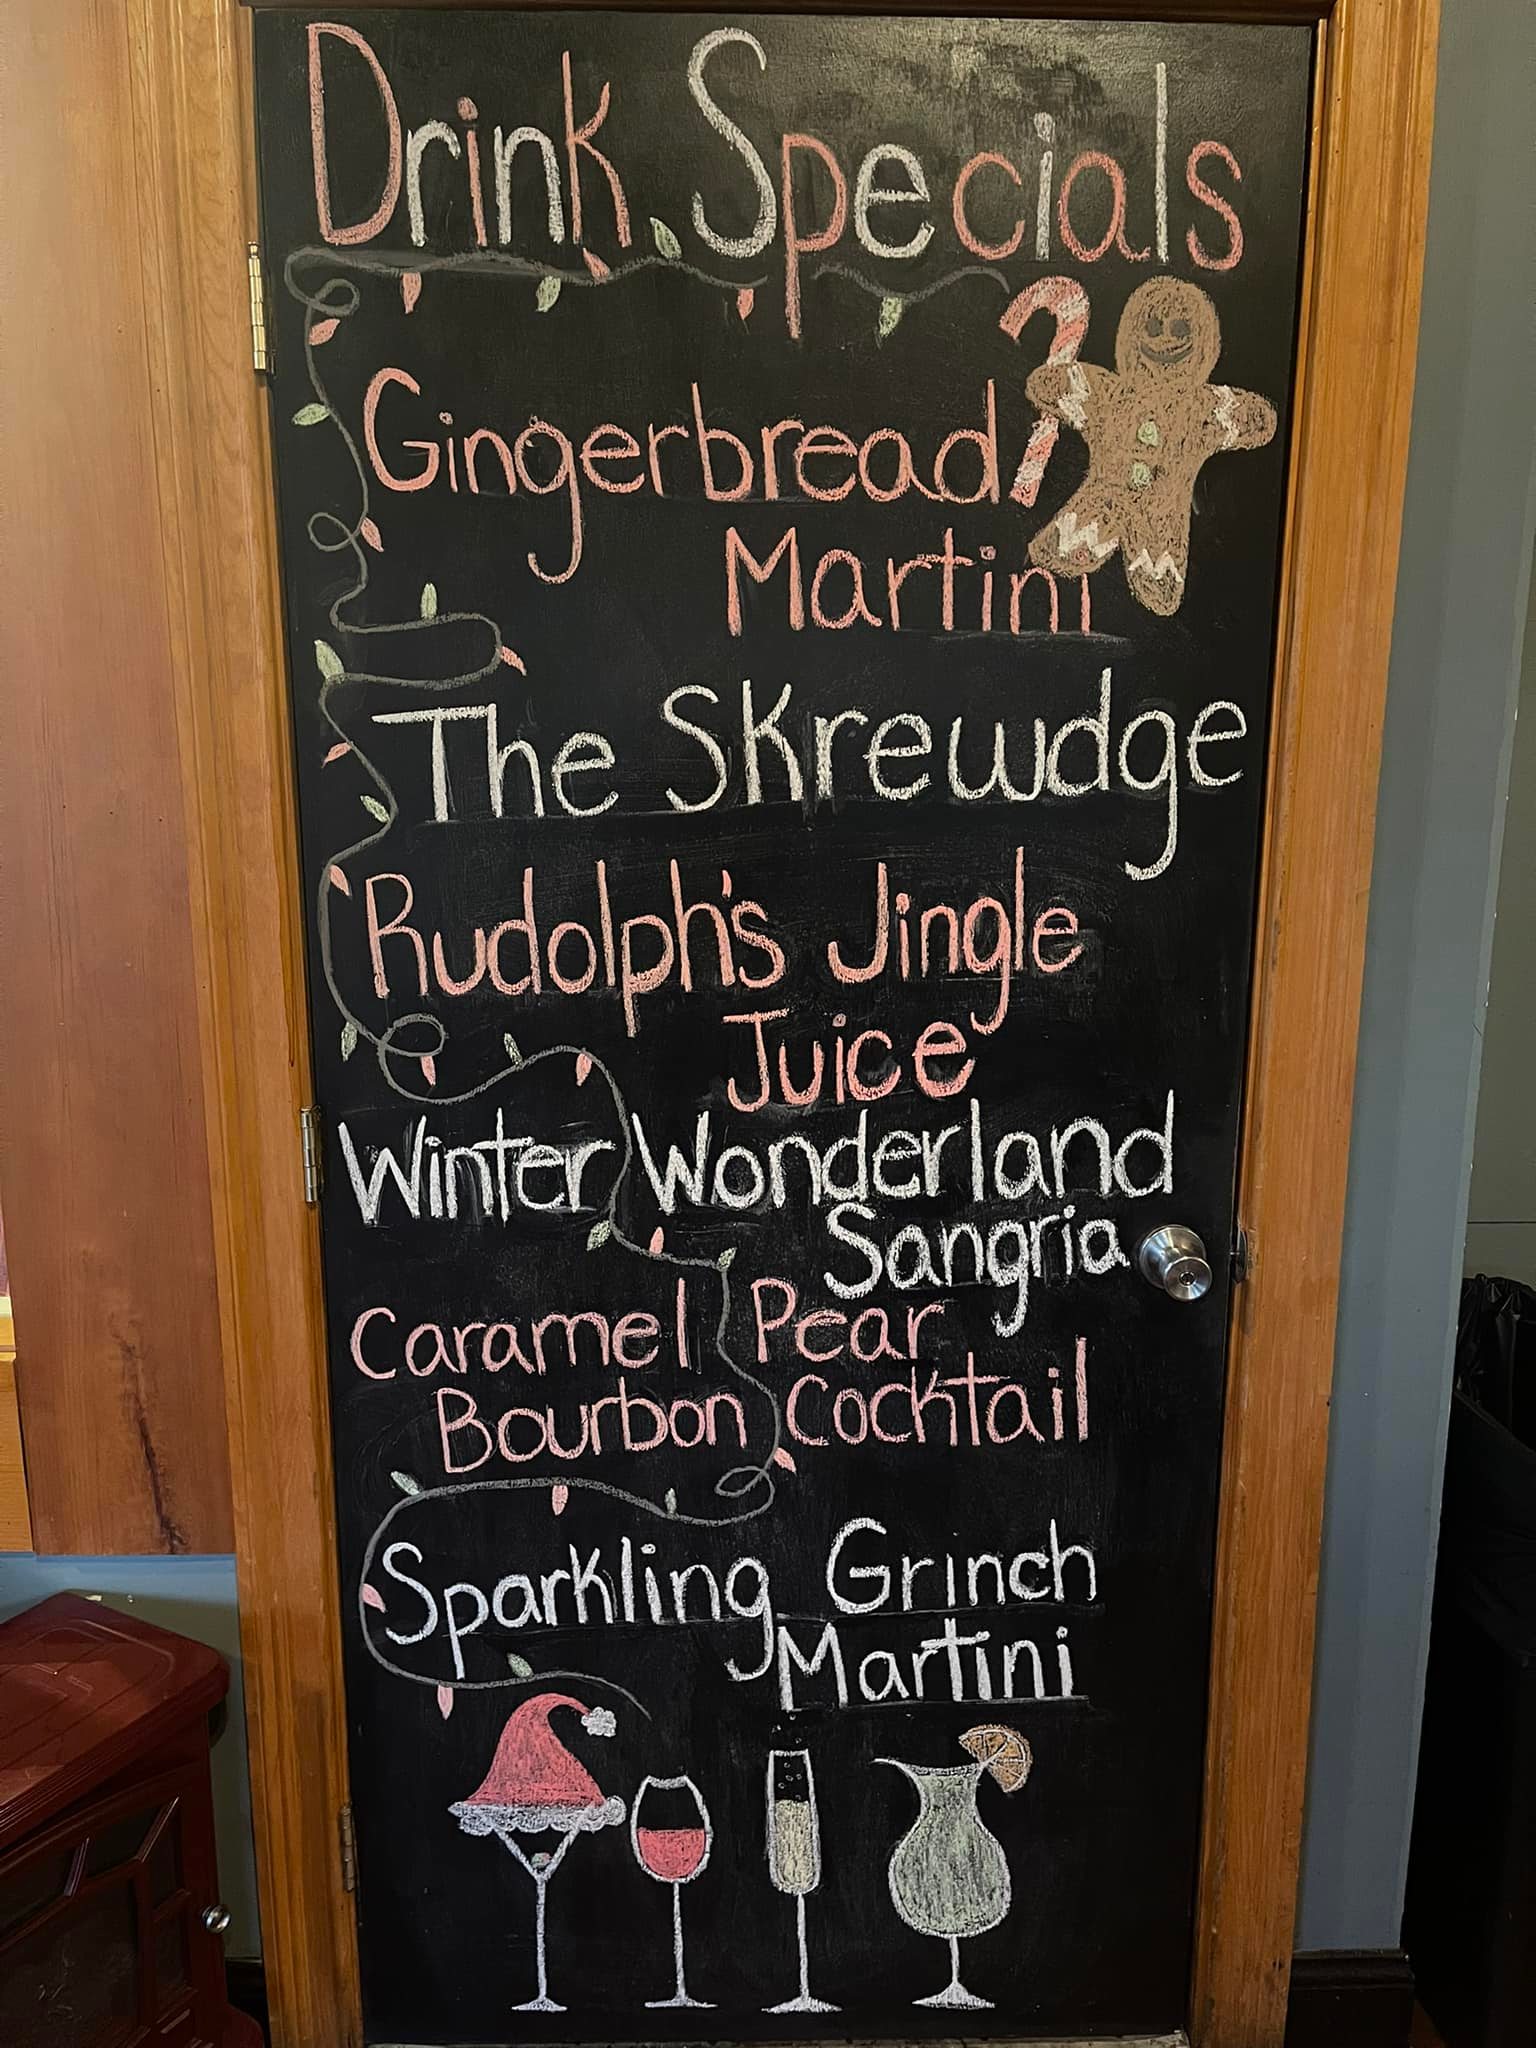 Drink Specials
Gingerbread
Martini
The Skrewdge
Rudolph's Jingle
Juice
Winter Wonderland
Sangria
Caramel Pear
Bourbon Cocktail
Sparkling Grinch
Martini